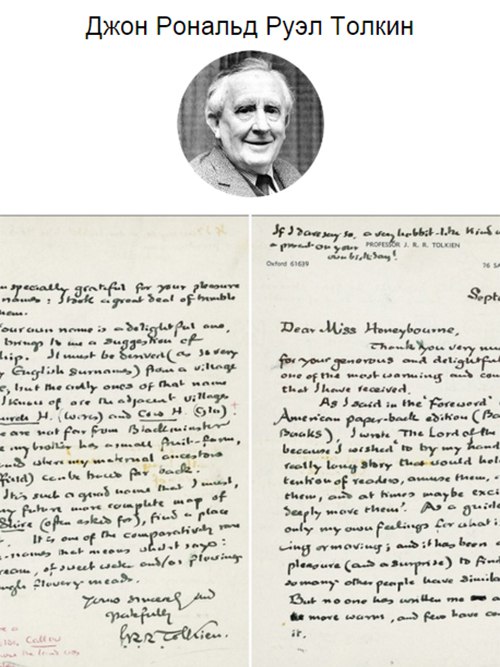 Джон Рональд Руэл Толкин
specially grateful for your pleasure
names: I took a great deal of trouble
hem.
our own name is a delightful one,
brings to me a suggestion of
hip. It must be derived (as so very
English surnames) from a village
e, but the only ones of that name
I know of are the adjacent villages
Church H. (Worcs) and Cow H. (Glo)
e are not far from Blackminster
e my brother has a small fruit-farm,
and where my maternal ancestors
field) can be traced far back.
It is such a good name that I must,
ny future more complete map of
Shire (often asked for), find a place
. It is one of the comparatively rare
-names that means what it says:
ream, of sweet water and/or flowing
ough flowery meads.
Yours sincerely and
gratefully
J.R.R. Tolkien.
Callow
If I dare say so, a very hobbit-like kind o
a present on your
own birthday!
PROFESSOR J. R. R. TOLKIEN
Oxford 61639
76 SA
Septe
Dear Miss Honeybourne,
Thank you very mu
for your generous and delightful
one of the most warming and com
that I have received.
As I said in the 'Foreword'
American paper-back edition (Ba
Books), I wrote The Lord of the
because I wished 'to try my hand
really long story that would hold
tention of readers, amuse them,
them, and at times maybe exci
deeply move them'. As a guide
only my own feelings for what i
ing or moving; and it has been a
pleasure (and a surprise) to find
so many other people have simila
But no one has written me a
more warm, and few have co
it.